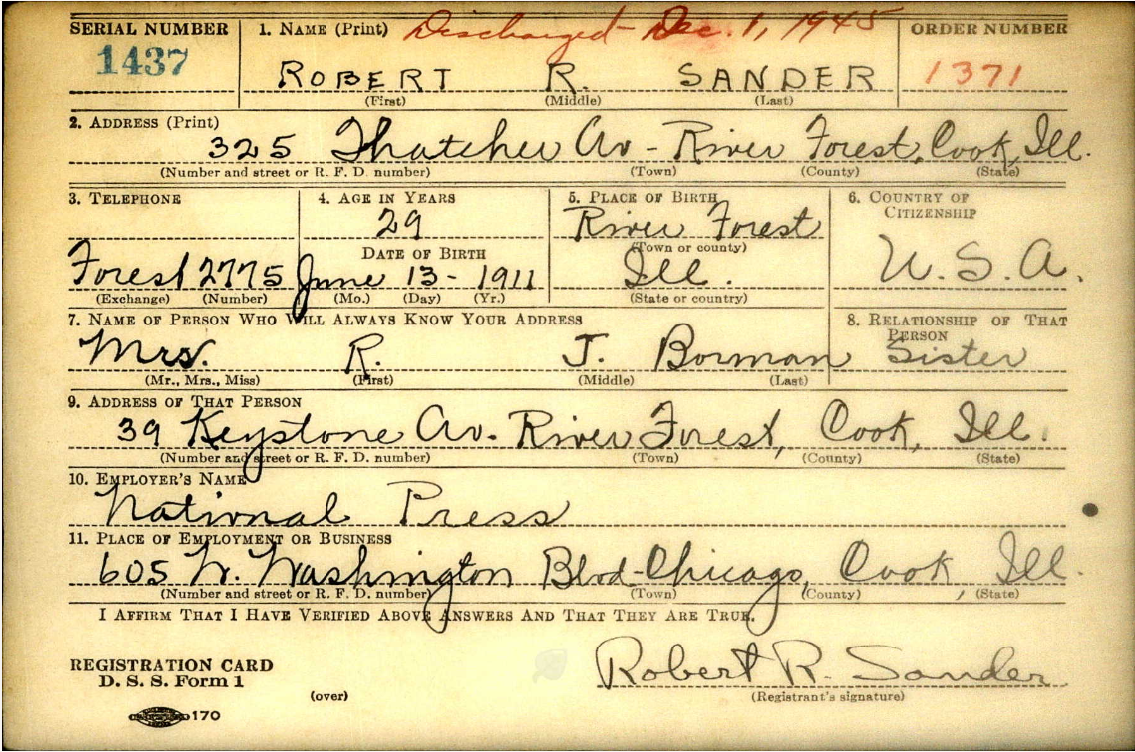 SERIAL NUMBER 1. NAME (Print) Discharged Dec. 1, 1945 ORDER NUMBER
1437 ROBERT R. SANDER 1371
(First) (Middle) (Last)
2. ADDRESS (Print)
325 Thatcher Av - River Forest, Cook, Ill.
(Number and street or R. F. D. number) (Town) (County) (State)
3. TELEPHONE 4. AGE IN YEARS 5. PLACE OF BIRTH 6. COUNTRY OF CITIZENSHIP
29 River Forest
DATE OF BIRTH (Town or county)
Forest 2775 June 13 - 1911 Ill. U.S.A.
(Exchange) (Number) (Mo.) (Day) (Yr.) (State or country)
7. NAME OF PERSON WHO WILL ALWAYS KNOW YOUR ADDRESS 8. RELATIONSHIP OF THAT PERSON
Mrs. R. J. Borman Sister
(Mr., Mrs., Miss) (First) (Middle) (Last)
9. ADDRESS OF THAT PERSON
39 Keystone Av. River Forest, Cook, Ill.
(Number and street or R. F. D. number) (Town) (County) (State)
10. EMPLOYER'S NAME
National Press
11. PLACE OF EMPLOYMENT OR BUSINESS
605 W. Washington Blvd - Chicago, Cook, Ill.
(Number and street or R. F. D. number) (Town) (County) (State)
I AFFIRM THAT I HAVE VERIFIED ABOVE ANSWERS AND THAT THEY ARE TRUE.
REGISTRATION CARD Robert R. Sander
D. S. S. Form 1 (over) (Registrant's signature)
170